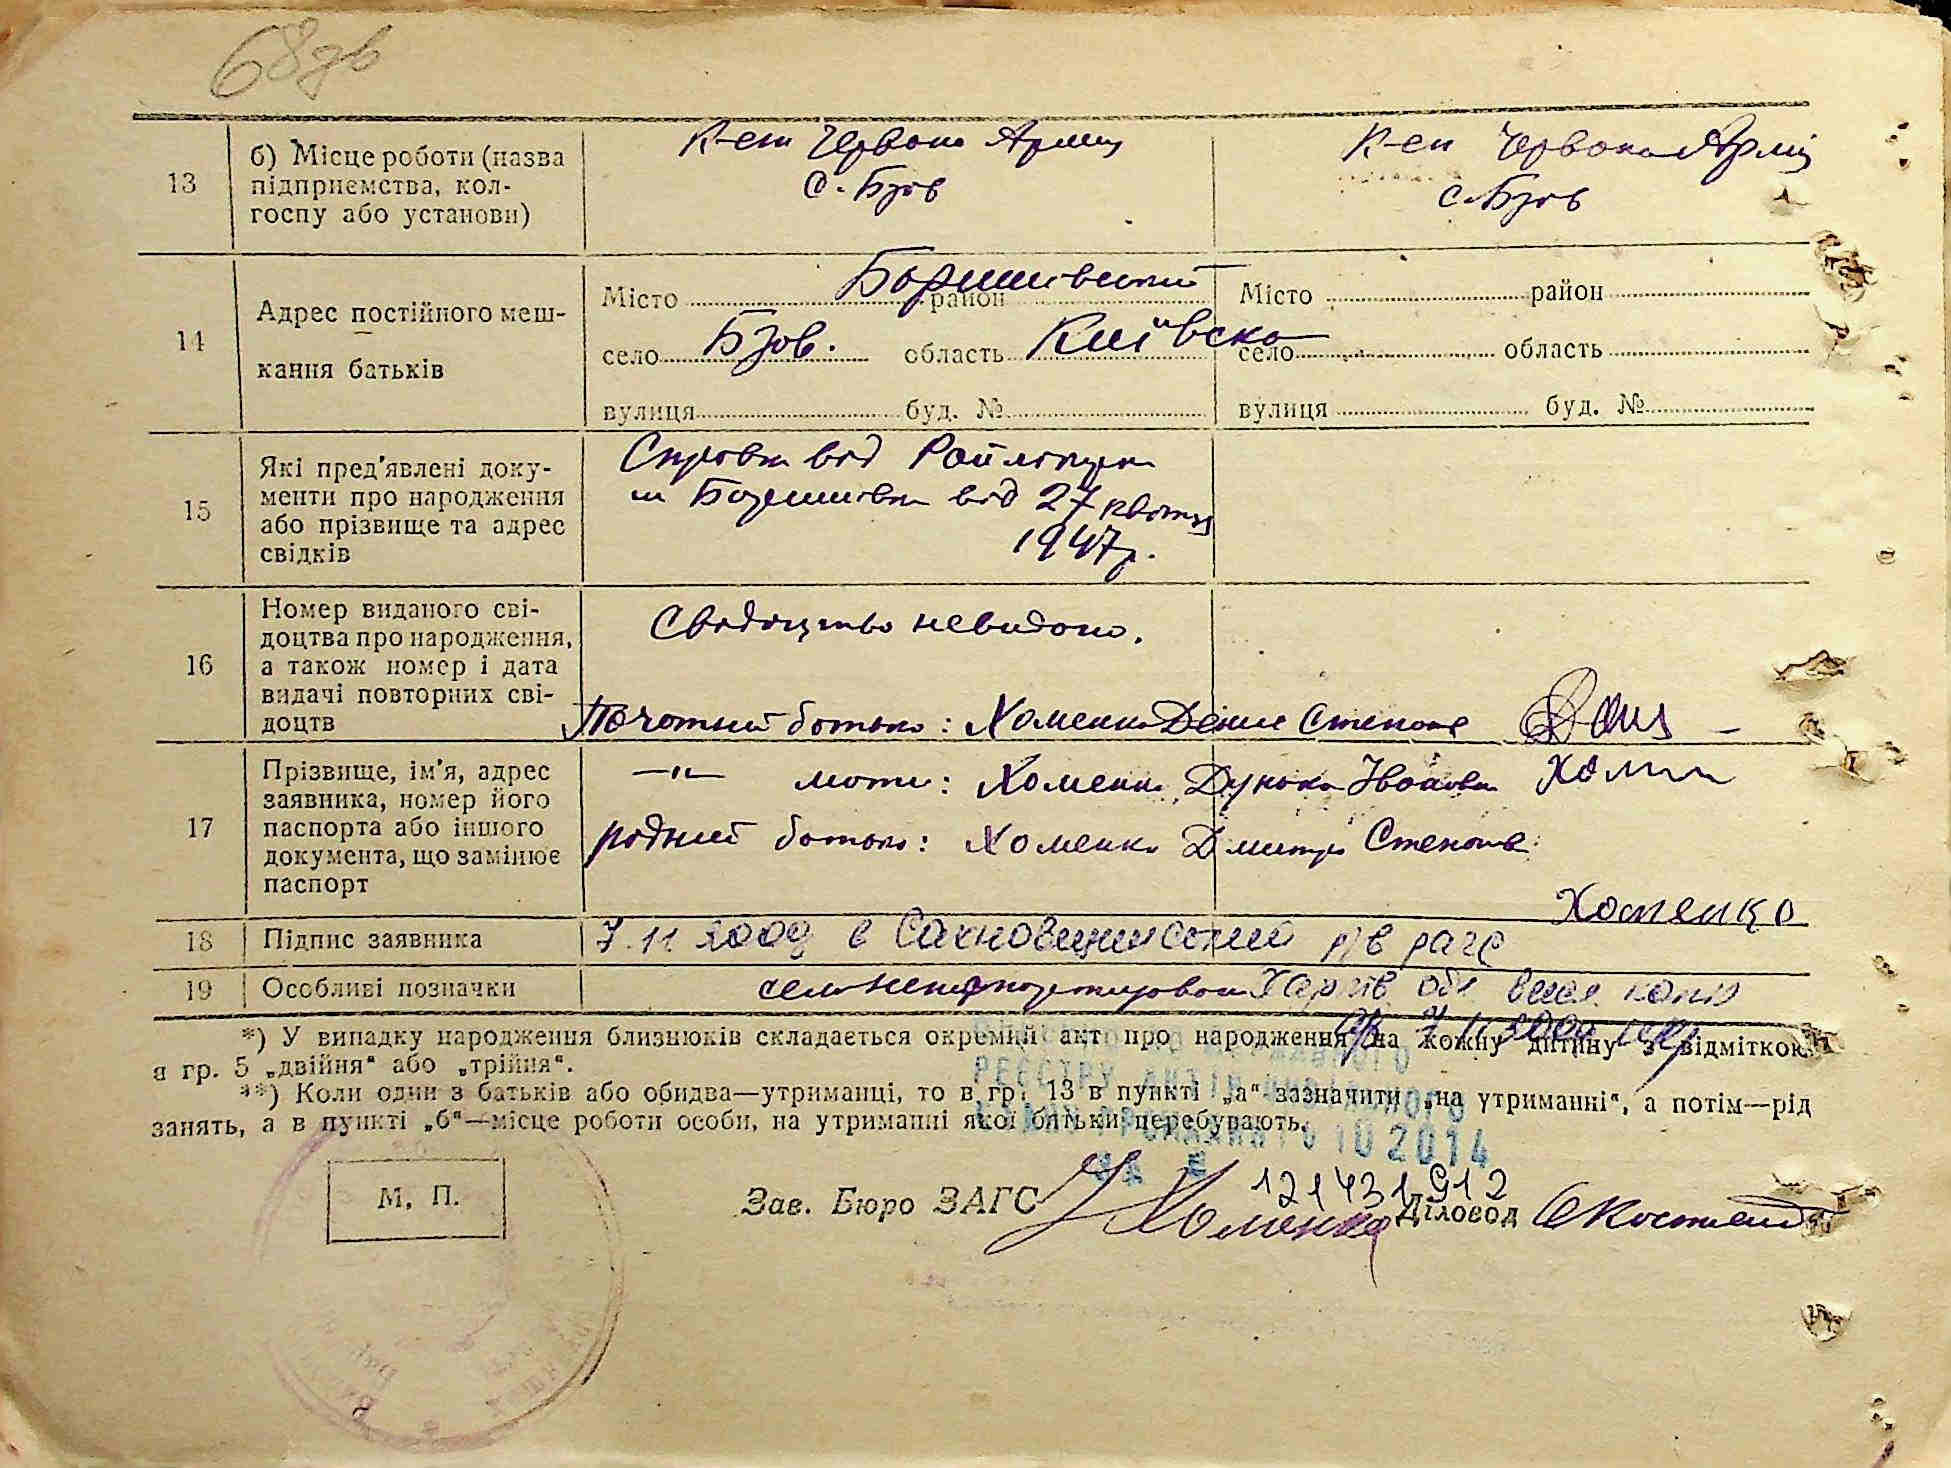 68зв
13
б) Місце роботи (назва
підприємства, кол-
госпу або установи)
К-сп Червона Армія
с. Бзов
К-сп Червона Армія
с. Бзов
14
Адрес постійного меш-
кання батьків
Місто район Боришівський
село Бзов. область Київска
вулиця буд. №
Місто район
село область
вулиця буд. №
15
Які пред'явлені доку-
менти про народження
або прізвище та адрес
свідків
Справка від
м Боришівка від 27 квітня
1947р.
16
Номер виданого сві-
доцтва про народження,
а також номер і дата
видачі повторних сві-
доцтв
Свідоцтво невидано.
17
Прізвище, ім'я, адрес
заявника, номер його
паспорта або іншого
документа, що замінює
паспорт
батько: Хоменко Денис Степано
—"— мати: Хоменко Дунька Івановна
рідний батько: Хоменко Дмитро Степанов
Хоменко
18
Підпис заявника
7.11 2000 в Сахновщинский
19
Особливі позначки
Харків обл
*) У випадку народження близнюків складається окремий акт про народження на кожну дитину з відміткою
в гр. 5 „двійня“ або „трійня“.
**) Коли один з батьків або обидва—утриманці, то в гр. 13 в пункті „а“ зазначити „на утриманні“, а потім—рід
занять, а в пункті „б“—місце роботи особи, на утриманні якої батьки перебувають.
РЕЄСТРУ АКТІВ ЦИВІЛЬНОГО
СТАНУ ГРОМАДЯН 10 2014
М. П.
Зав. Бюро ЗАГС Хоменко
121431912
Діловод